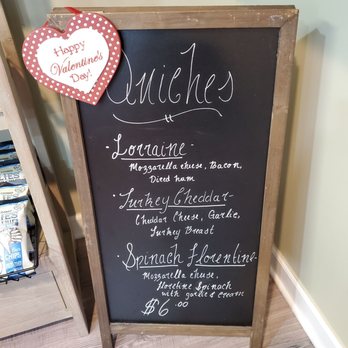 Happy
Valentine's
Day!
Quiches
· Lorraine -
Mozzarella cheese, Bacon,
Diced ham
· Turkey Cheddar -
Cheddar Cheese, Garlic,
Turkey Breast
· Spinach Florentine -
Mozzarella cheese,
Spinach
with garlic & cream
$6.00